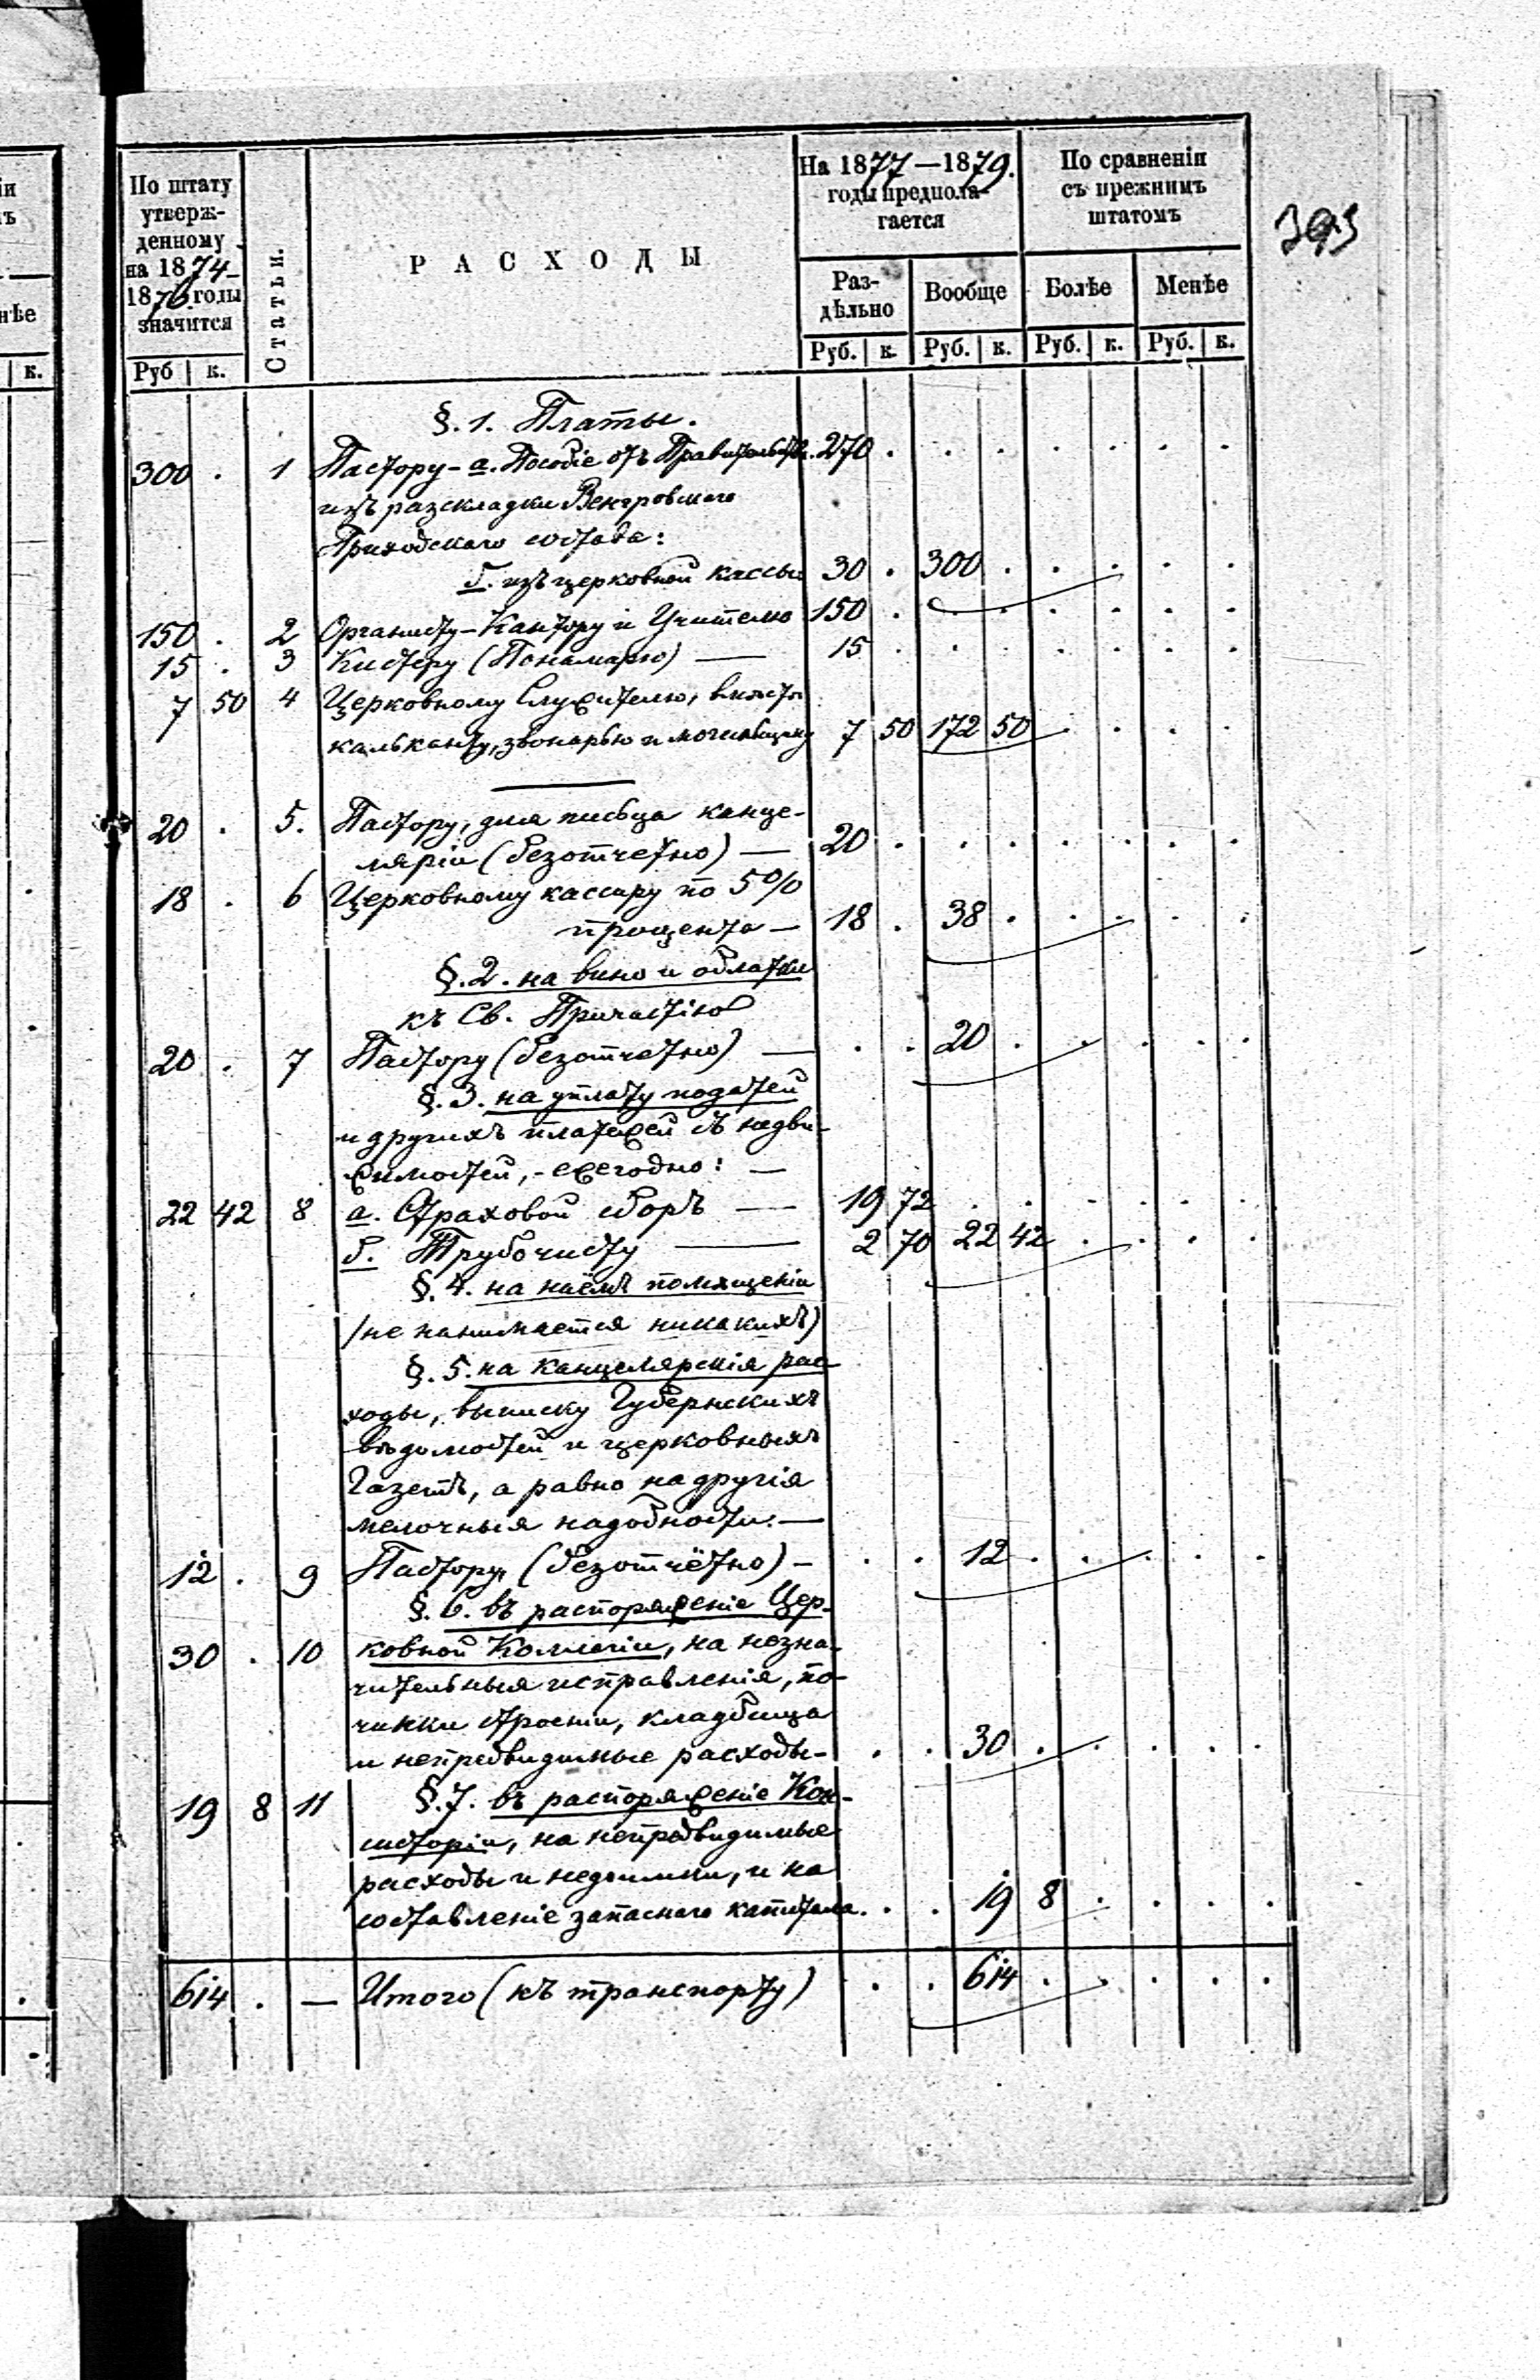 іи
ъ
нѣе
к.
393
По штату
утверж-
денному
на 1874-
1876 годы
значится
Руб | к.
Статьи.
РАСХОДЫ
На 1877—1879.
годы предпола-
гается
Раз-
дѣльно
Вообще
По сравненіи
съ прежнимъ
штатомъ
Болѣе
Менѣе
Руб. | к. Руб. | к. Руб. | к. Руб. | к.
§. 1. Платы.
300 . 1 Пастору - а. Пособіе отъ Правительства. 270 .
изъ раскладки Венгровскаго
Приходскаго состава:
б. изъ церковной кассы 30 . 300 .
150 . 2 Органисту-Кантору и Учителю 150 .
15 . 3 Кистеру (Понамарю) — 15 .
7 50 4 Церковному Служителю, вмѣстѣ
кальканту, звонарью и могильщику 7 50 172 50
20 . 5. Пастору, для писца канце-
ляріи (безотчетно) — 20 .
18 . 6 Церковному кассиру по 5%
процента — 18 . 38 .
§. 2. на вино и облатки
къ Св. Причастію
20 . 7 Пастору (безотчетно) — . . 20 .
§. 3. на уплату податей
и другихъ платежей съ недви-
жимостей, - ежегодно: —
22 42 8 а. Страховой сборъ — 19 72
б. Трубочисту — 2 70 22 42
§. 4. на наёмъ помѣщеніи
(не нанимается никакихъ)
§. 5. на канцелярскія рас
ходы, выписку Губернскихъ
вѣдомостей и церковныхъ
Газетъ, а равно на другія
мелочныя надобности. —
12 . 9 Пастору, (безотчётно) — . . 12 .
§. 6. въ распоряженіе Цер-
30 . 10 ковной Коллегіи, на незна-
чительныя исправленія, по-
чинки строеніи, кладбища
и непредвидимые расходы - . . 30 .
19 8 11 §. 7. въ распоряженіе Кон-
систоріи, на непредвидимые
расходы и недоимки, и на
составленіе запаснаго капитала. . . 19 8
614 . — Итого (къ транспорту) . . 614 .